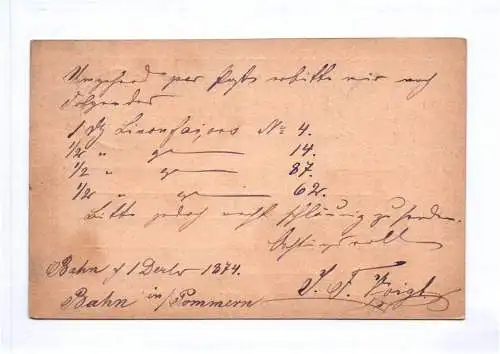 Umgehend per Post erbitte mir noch
Folgendes
1 No 4.
1/2 " 14.
1/2 " 87.
1/2 " 62.
Bitte jedoch recht schleunig zu senden.
Achtungsvoll
Bahn d 1 1874.
Bahn in Pommern
J. F. Voigt